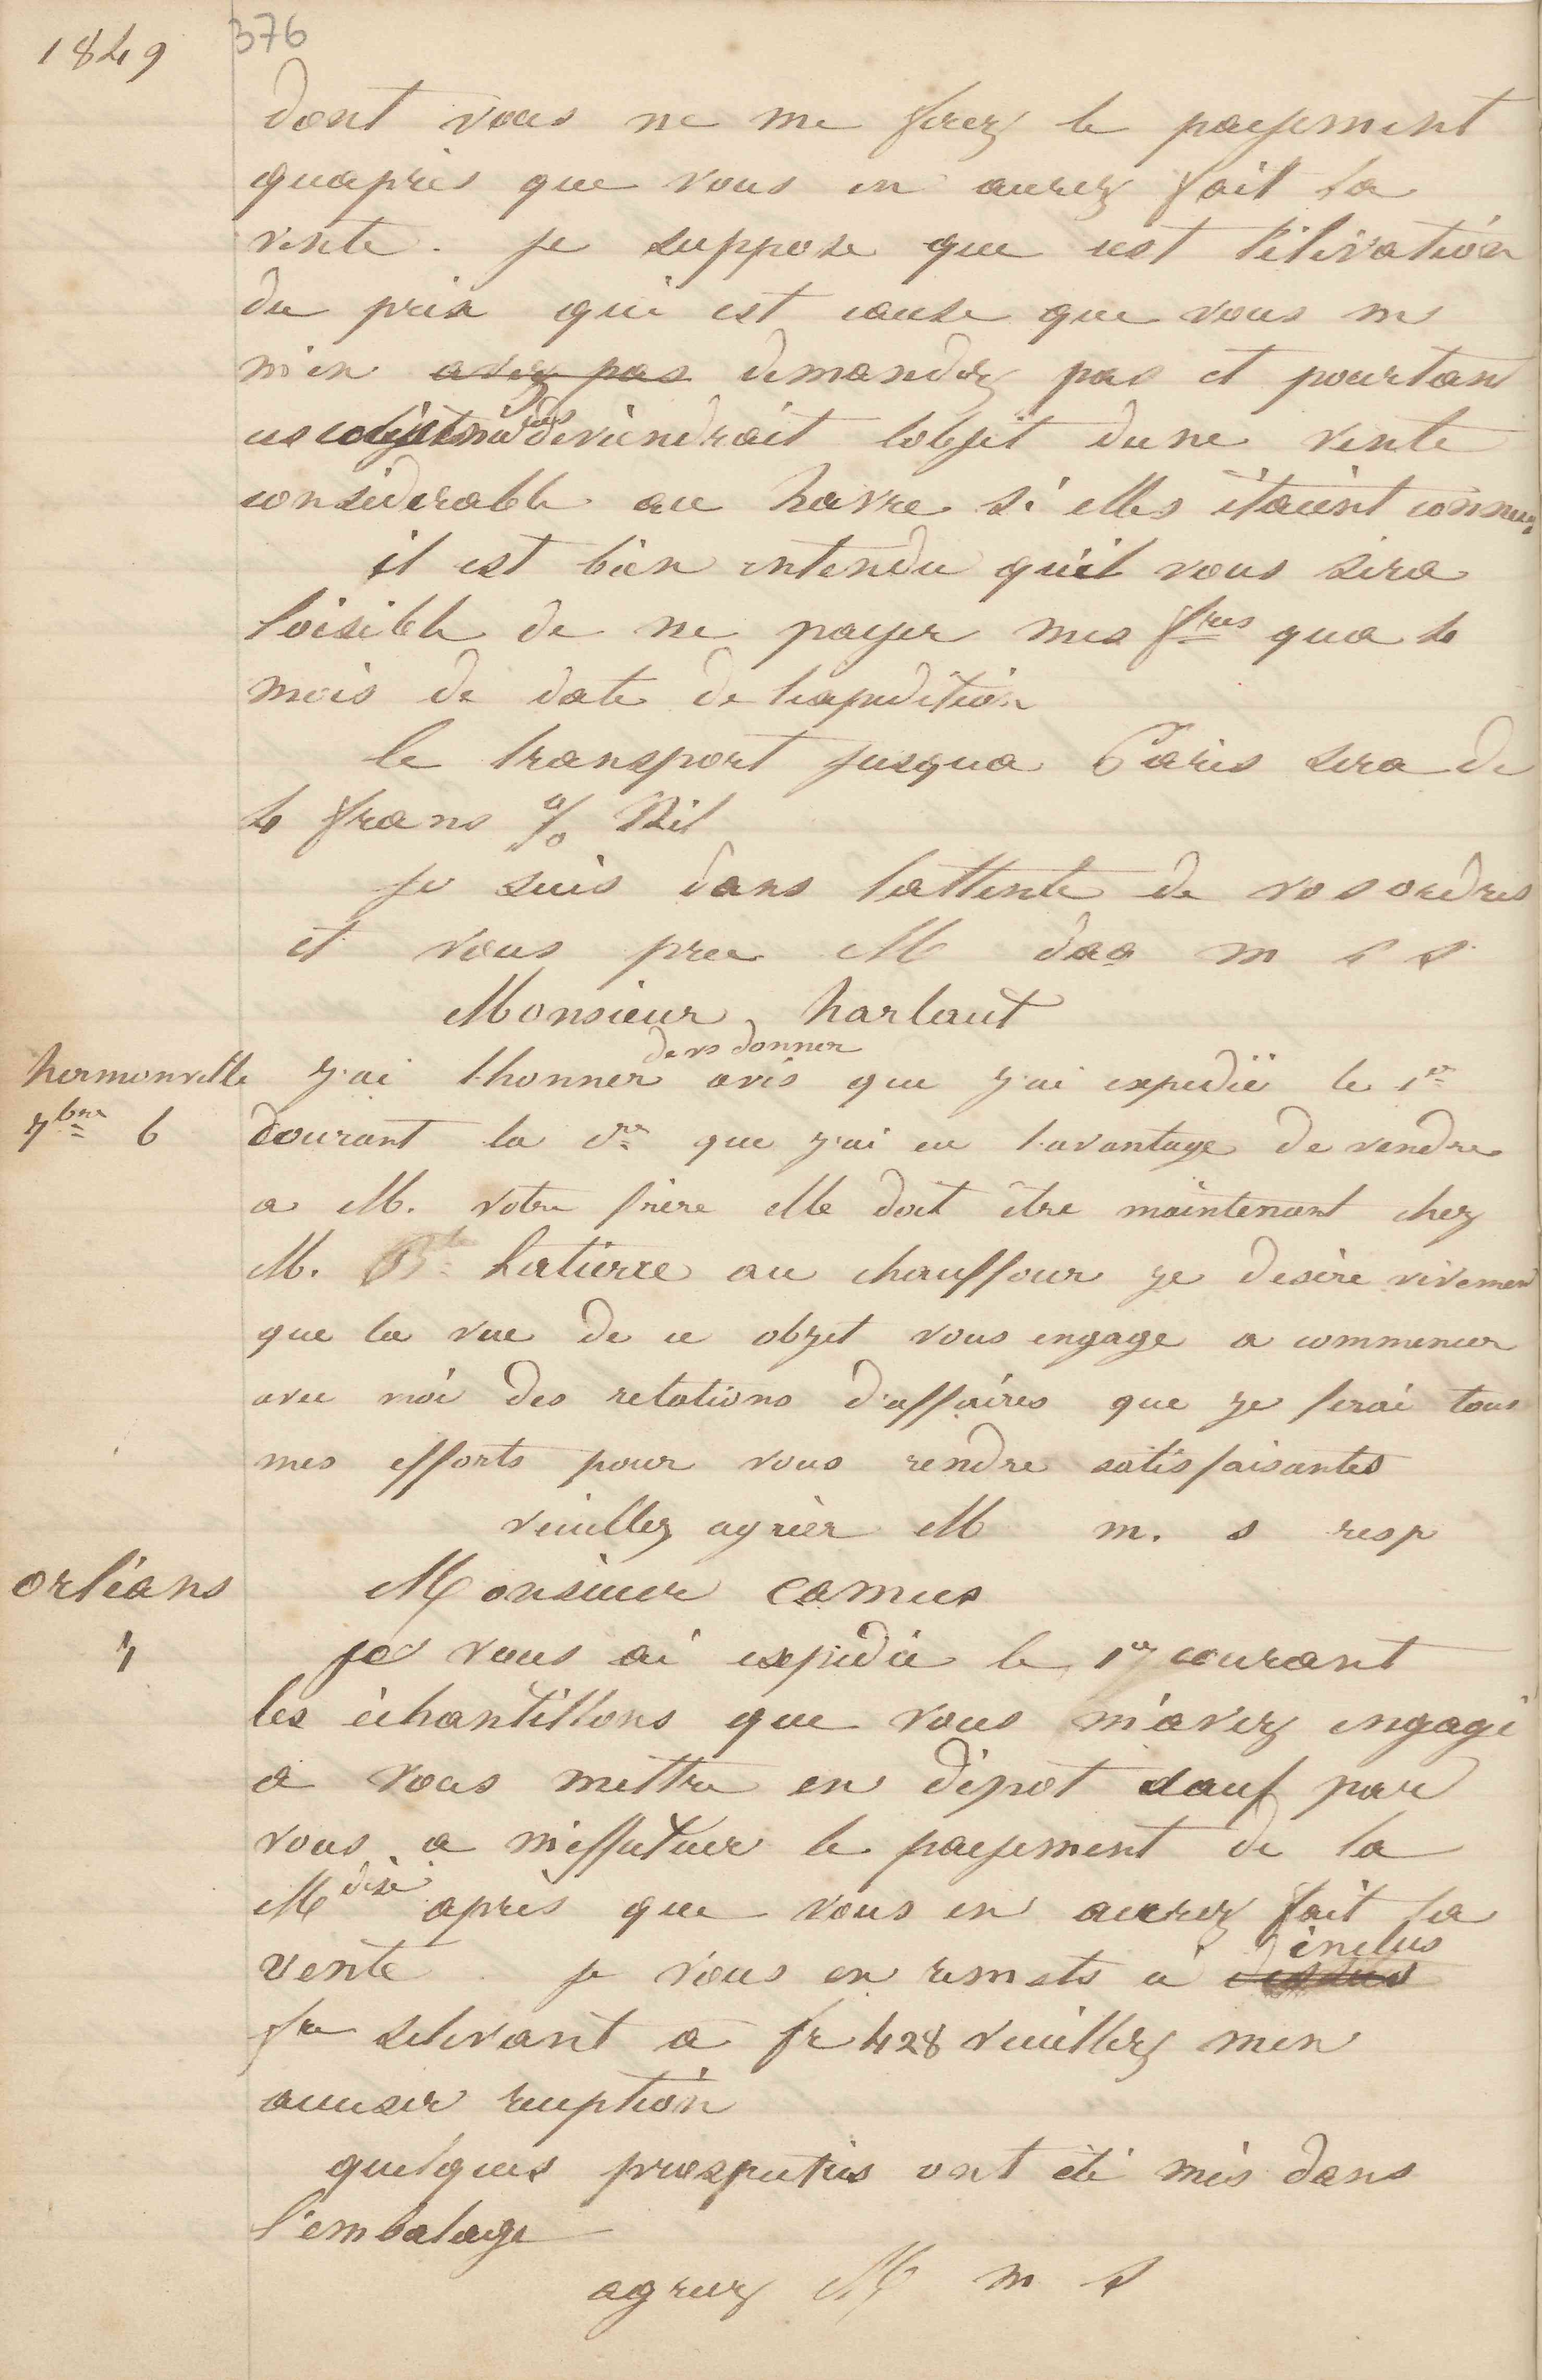 1849
376
dont vous ne me ferez le payement
quapres que vous en aurez fait la
vente. je suppose que cest l'élévation
du prix qui est cause que vous ne
m'en avez pas demandez pas et pourtant
ces deviendrait lobjet dune vente
considerable au havre si elles étaient connues
il est bien entendu qu'il vous sera
loisible de ne payer mes fres qua 4
mois de date de lexpedition
le transport jusqua Paris sera de
4 frans % Kil
je suis dans lattente de vos ordres
et vous prie M daa m s s
Monsieur harlaut
de vs donner
hermonville j'ai l'honner avis que j'ai expedié le 1er
7bre 6 courant la que j'ai eu l'avantage de vendre
a M. votre frère elle doit être maintenant chez
M. Bte Latierce au chauffour je desire vivement
que la vue de ce objet vous engage a commencer
avec moi des relations d'affaires que je ferai tous
mes efforts pour vous rendre satisfaisantes
veuillez agrèer M m. s resp
orléans Monsieur camus
7 je vous ai expedié le 17 courant
les échantillons que vous m'avez engagé
a vous mettre en dépot sauf par
vous a m'effectuer le payement de la
Mdise après que vous en aurez fait la
inclus
vente. je vous en remets ci dessus
fre selevant a fr 428 veuillez men
accuser reception
quelques prospectus ont été mis dans
l'embalage
agreez M m s